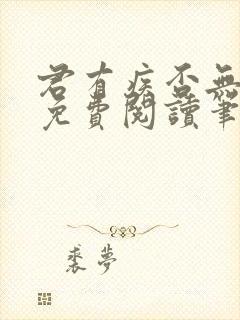 君有疾否無
免費閱讀筆
裘夢